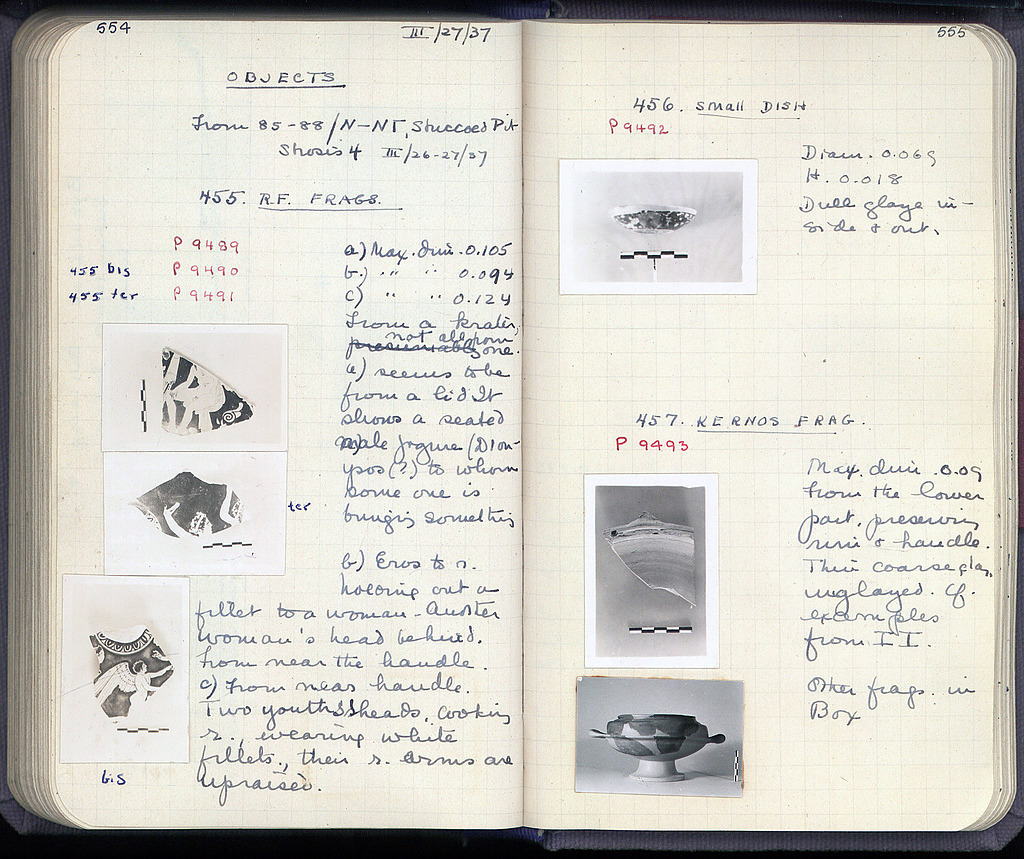 554
III/27/37
OBJECTS
From 85-88/N-NΓ, Stuccoed Pit
Strosis 4 III/26-27/37
455. R.F. FRAGS.
P 9489
455 bis P 9490
455 ter P 9491
a) Max. dim. 0.105
b.) " " 0.094
c) " " 0.124
From a krater,
not all from
presumably one.
a) seems to be
from a lid It
shows a seated
male figure (Dion-
ysos (?) to whom
some one is
bringing something
ter
b) Eros to r.
holding out a
fillet to a woman. Another
woman's head behind.
From near the handle.
c) From near handle.
Two youths heads, looking
r., wearing white
fillets, their r. arms are
upraised.
bis
555
456. Small DISH
P 9492
Diam. 0.069
H. 0.018
Dull glaze in-
side & out.
457. KERNOS FRAG.
P 9493
Max. dim. 0.09
From the lower
part, preserving
rim & handle.
Thin coarse clay,
unglazed. Cf.
examples
from II.
Other frags. in
Box